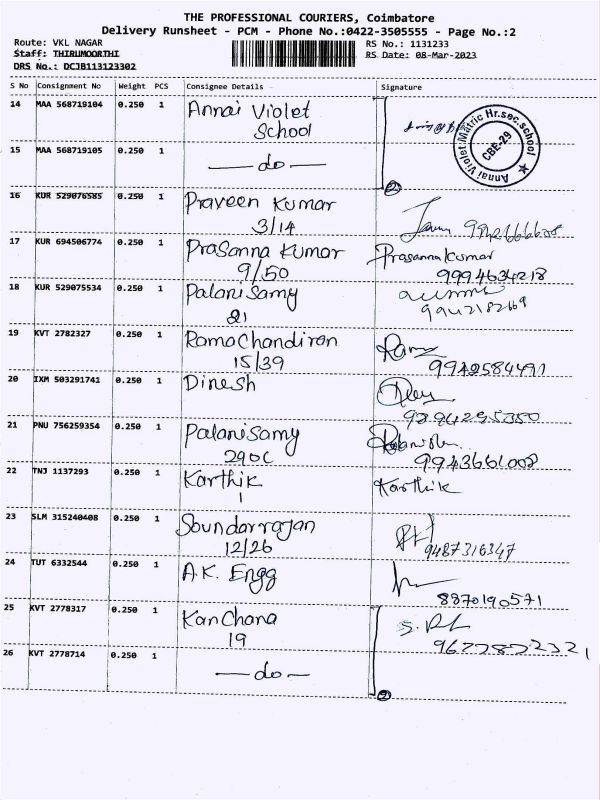 THE PROFESSIONAL COURIERS, Coimbatore
Delivery Runsheet - PCM - Phone No.:0422-3505555 - Page No.:2
Route: VKL NAGAR RS No.: 1131233
Staff: THIRUMOORTHI RS Date: 08-Mar-2023
DRS No.: DCJB113123302
S No Consignment No Weight PCS Consignee Details Signature
14 MAA 568719104 0.250 1 Annai Violet
School
Annai Violet Matric Hr.sec.school
CBE-29
15 MAA 568719105 0.250 1 do
2
16 KUR 529076585 0.250 1 Praveen Kumar
3/14
17 KUR 694506774 0.250 1 Prasanna Kumar Prasanna Kumar
9/50 9994634218
18 KUR 529075534 0.250 1 Palani Samy
21 9942182669
19 KVT 2782327 0.250 1 Rama Chandiran Ram
15/39 9942584491
20 IXM 503291741 0.250 1 Dinesh
21 PNU 756259354 0.250 1 Palani Samy
290C 9943661008
22 TNJ 1137293 0.250 1 Karthik Karthik
1
23 SLM 315240408 0.250 1 Soundarrajan
12/26 9487316347
24 TUT 6332544 0.250 1 A.K. Engg
8870190571
25 KVT 2778317 0.250 1 Kanchana
19
26 KVT 2778714 0.250 1 do
2